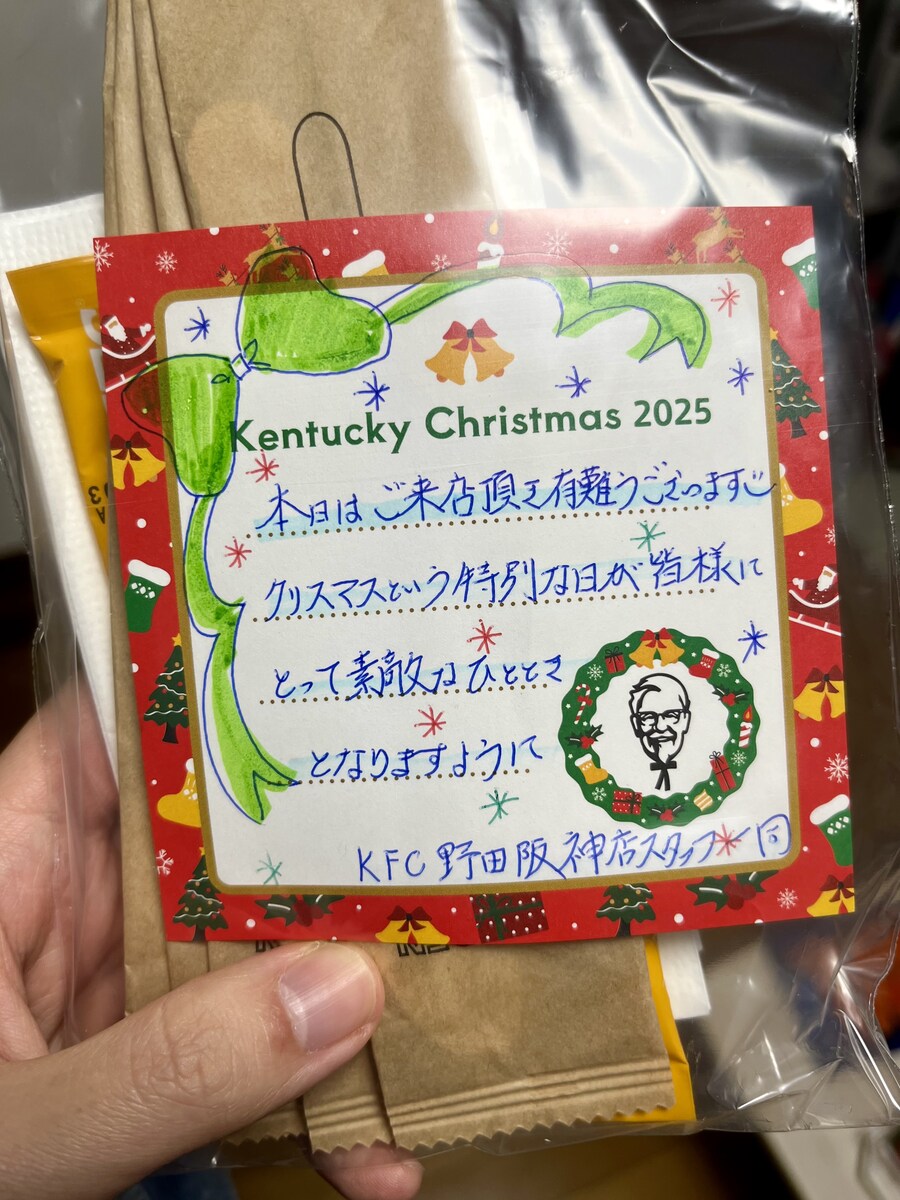 Kentucky Christmas 2025
本日はご来店頂き有難うございます
クリスマスという特別な日が皆様に
とって素敵なひととき
となりますように
KFC 野田阪神店スタッフ一同